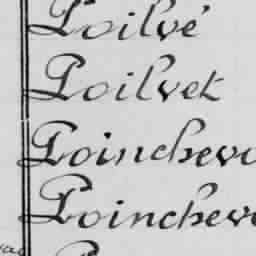 Poilvé
Poilvet
Poincheva
Poincheva